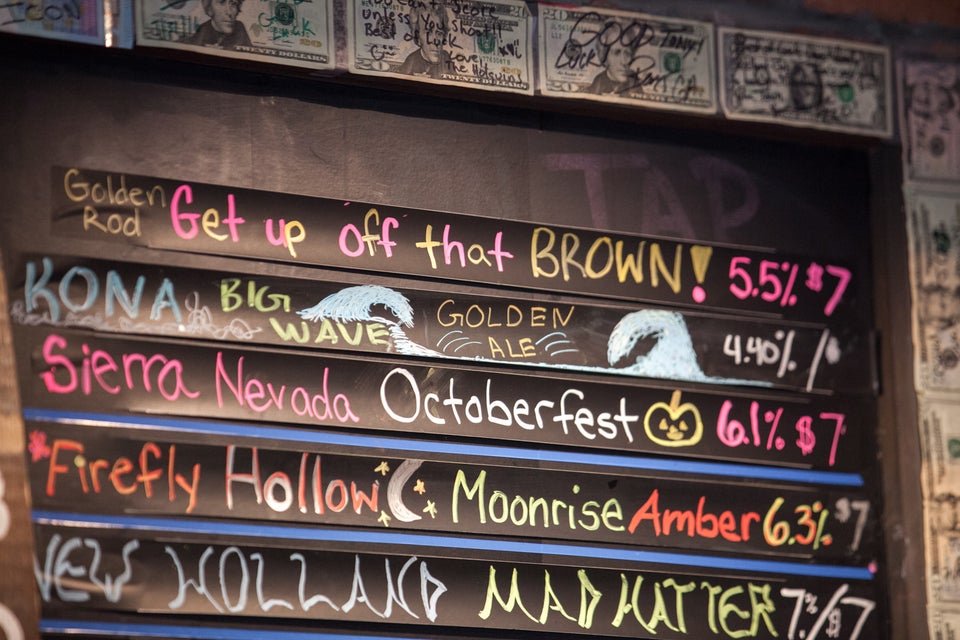 You Can't Score
Unless You Shoot!!
Best of Luck
Love,
TWENTY DOLLARS
TWENTY DOLLARS
GOOD
Luck
TAP
Golden Rod Get up off that BROWN! 5.5% $7
KONA BIG WAVE GOLDEN ALE 4.40% / 6
Sierra Nevada Octoberfest 6.1% $7
Firefly Hollow Moonrise Amber 6.3% $7
NEW HOLLAND MAD HATTER 7% / $7